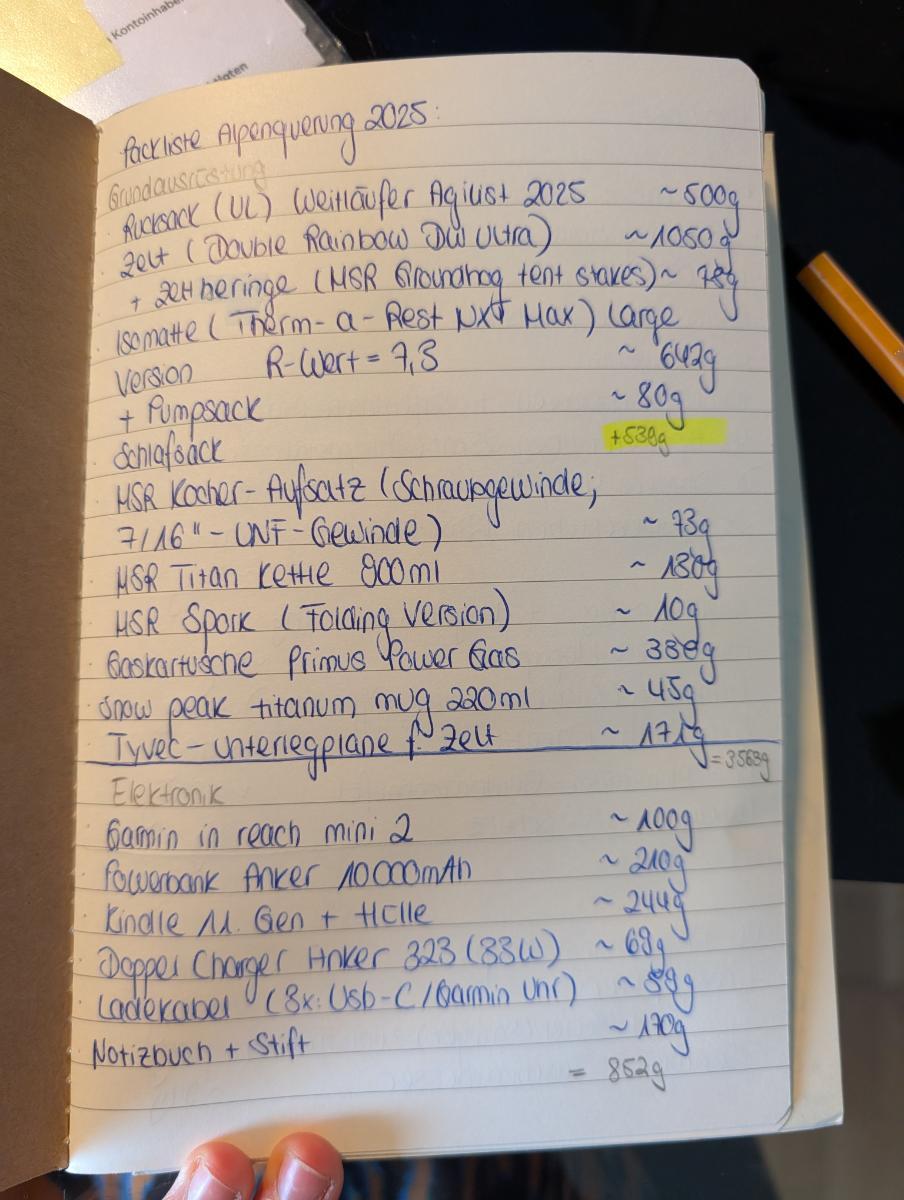 Kontoinhabe
Packliste Alpenquerung 2025:
Grundausrüstung
· Rucksack (UL) Weitläufer Agilist 2025 ~500g
· Zelt (Double Rainbow DW Ultra) ~1050g
+ Zeltheringe (MSR Groundhog tent stakes) ~ 78g
· Isomatte (Therm-a-Rest Nxt Max) Large
Version R-Wert = 7,3 ~ 642g
+ Pumpsack ~ 80g
· Schlafsack +538g
· MSR Kocher-Aufsatz (Schraubgewinde;
7/16"-UNF-Gewinde) ~ 73g
· MSR Titan Kettle 900ml ~ 130g
· MSR Spork (Folding Version) ~ 10g
· Gaskartusche Primus Power Gas ~ 330g
· Snow peak titanum mug 220ml ~ 45g
· Tyvec-Unterlegplane f. Zelt ~ 171g
= 3563g
Elektronik
· Garmin in reach mini 2 ~ 100g
· Powerbank Anker 10000mAh ~ 210g
· Kindle 11. Gen + Hülle ~ 244g
· Doppel Charger Anker 323 (33W) ~ 69g
· Ladekabel (3x: Usb-C/Garmin Uhr) ~ 59g
· Notizbuch + Stift ~ 170g
= 852g